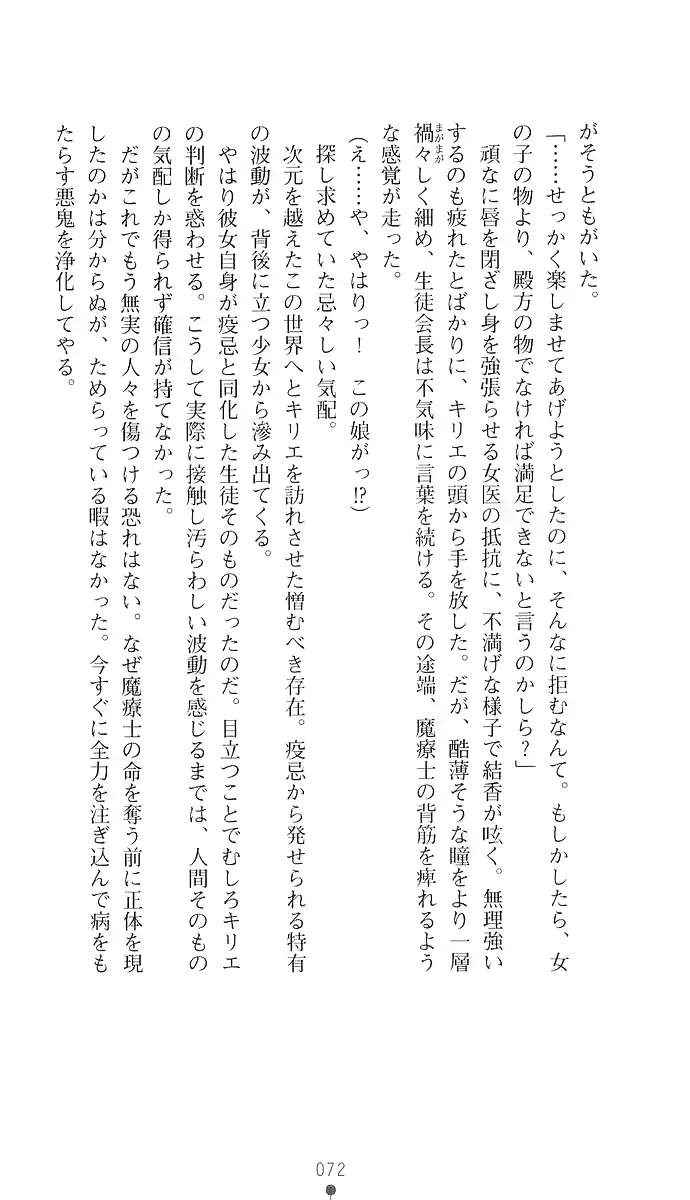 がそうともがいた。
「……せっかく楽しませてあげようとしたのに、そんなに拒むなんて。もしかしたら、女
の子の物より、殿方の物でなければ満足できないと言うのかしら？」
頑なに唇を閉ざし身を強張らせる女医の抵抗に、不満げな様子で結香が呟く。無理強い
するのも疲れたとばかりに、キリエの頭から手を放した。だが、酷薄そうな瞳をより一層
禍々しく細め、生徒会長は不気味に言葉を続ける。その途端、魔療士の背筋を痺れるよう
まがまが
な感覚が走った。
（え……や、やはりっ！　この娘がっ!?）
探し求めていた忌々しい気配。
次元を越えたこの世界へとキリエを訪れさせた憎むべき存在。疫忌から発せられる特有
の波動が、背後に立つ少女から滲み出てくる。
やはり彼女自身が疫忌と同化した生徒そのものだったのだ。目立つことでむしろキリエ
の判断を惑わせる。こうして実際に接触し汚らわしい波動を感じるまでは、人間そのもの
の気配しか得られず確信が持てなかった。
だがこれでもう無実の人々を傷つける恐れはない。なぜ魔療士の命を奪う前に正体を現
したのかは分からぬが、ためらっている暇はなかった。今すぐに全力を注ぎ込んで病をも
たらす悪鬼を浄化してやる。
072